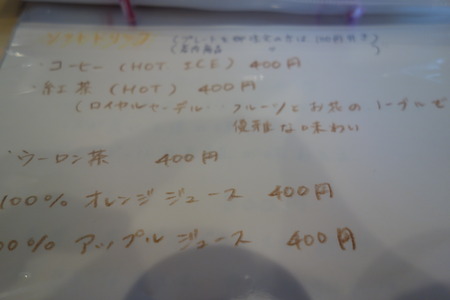 ソフトドリンク (プレートと御注文の方は100円引き)
・コーヒー (HOT ICE) 400円
・紅茶 (HOT) 400円
(ロイヤル フルーツとお花の で
優雅な味わい
・ウーロン茶 400円
100% オレンジジュース 400円
00% アップルジュース 400円